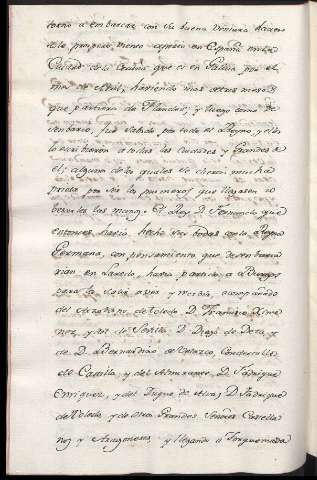 torno a embarcar con su buena ventura hizieron
dole prospero tiempo aporto en España en la
Ciudad de la Coruña que es en Galicia por el
mes de Abril; haviendo mas de tres meses
que partieron de Flandes, y luego como de
sembarco, fue sabido por todo el Reyno, y el
lo escribieron a todas las Ciudades y Grandes de
el; algunos de los quales se dieron mucha
priesa por ser los primeros que llegasen a
besarles las manos. El Rey D. Fernando que
entonces havia hecho sus bodas con la Reyna
Germana, con pensamiento que desembarca
rian en Laredo, havia partido a Burgos
para la salir a ver y recivir, acompañado
del Arzobispo de Toledo D. Francisco Xime
nez, y del de Sevilla D. Diego de Deza, y
de D. Bernardino de Velasco Condestable
de Castilla, y del Almirante D. Fadrique
Enriquez, y del Duque de Alva, D. Fadrique
de Toledo, y de otros Grandes Señores Castella
nos y Aragoneses y llegando a Torquemada